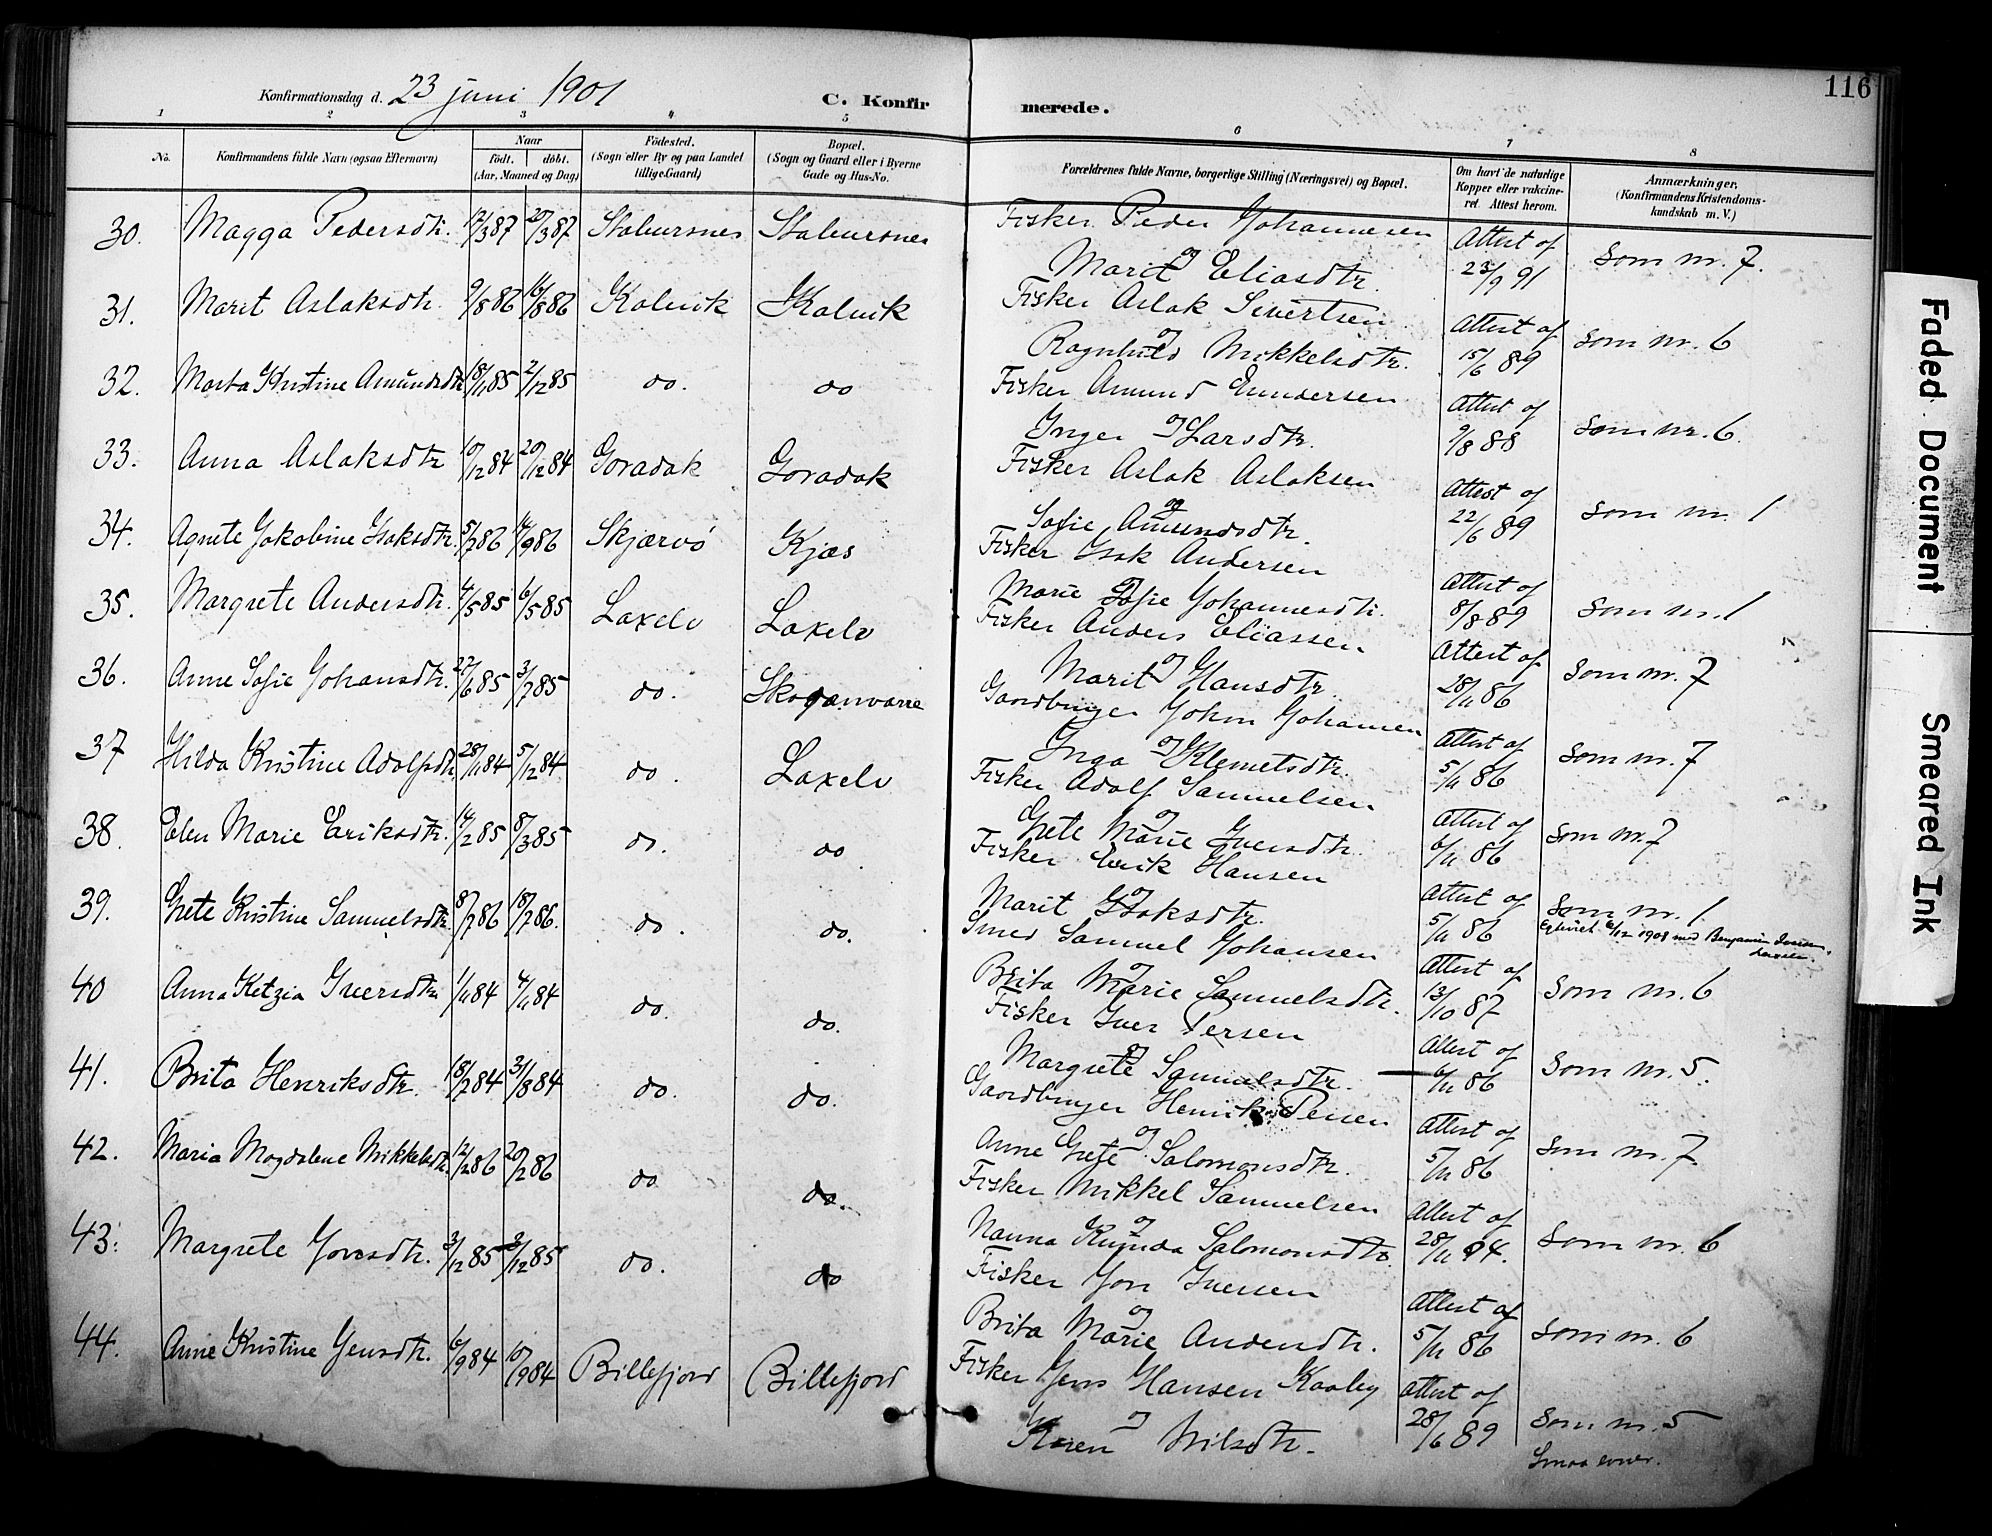 116
Konfirmationsdag d. 23 juni 1901
C. Konfirmerede.
1 2 3 4 5 6 7 8
No.
Konfirmandens fulde Navn (ogsaa Efternavn)
Naar
født. døbt.
(Aar, Maaned og Dag)
Fødested.
(Sogn eller By og paa Landet
tillige Gaard)
Bopæl.
(Sogn og Gaard eller i Byerne
Gade og Hus-No.
Forældrenes fulde Navne, borgerlige Stilling (Næringsvei) og Bopæl.
Om havt de naturlige
Kopper eller vakcine-
ret. Attest herom.
Anmærkninger,
(Konfirmandens Kristendoms-
kundskab m. V.)
30. Magga Pedersdtr. 17/3 87 20/3 87 Stabursnes Stabursnes Fisker Peder Johannesen Attest af Som nr. 7.
og
Marit Eliasdtr. 23/9 91
31. Marit Aslaksdtr. 9/8 86 16/8 86 Kolvik Kolvik Fisker Aslak Sivertsen Attest af Som nr. 6
og
Ragnhild Mikkelsdtr. 15/6 89
32. Marta Kristine Amundsdtr 18/11 85 2/12 85 do. do Fisker Amund Gundersen Attest af Som nr. 6.
Inger og Larsdtr. 9/8 88
33. Anna Aslaksdtr 10/12 84 20/12 84 Goradak Goradak Fisker Aslak Aslaksen Attest af Som nr. 1
og
Sofie Amundsdtr. 22/6 89
34. Agnete Jakobine Isaksdtr. 5/7 86 14/9 86 Skjærvø Kjæs Fisker Isak Andersen Attest af Som nr. 1
og
Marie Sofie Johannesdtr. 8/8 89
35. Margrete Andersdtr. 4/5 85 6/5 85 Laxelv Laxelv Fisker Anders Eliassen Attest af Som nr. 7
og
Marit Hansdtr. 28/11 86
36. Anne Sofie Johansdtr. 27/6 85 3/7 85 do. Skoganvarre Gaardbruger Johan Johansen Attest af Som nr. 7
Inga og Klemetsdtr. 5/11 86
37 Hilda Kristine Adolfsdtr 28/11 84 5/12 84 do. Laxelv Fisker Adolf Samuelsen Attest af Som nr. 7
og
Grete Marie Iversdtr. 6/11 86
38. Elen Marie Eriksdtr. 14/2 85 8/3 85 do. do Fisker Erik Hansen Attest af Som nr. 1.
og
Marit Isaksdtr. 5/11 86
39. Grete Kristine Samuelsdtr. 8/7 86 18/7 86. do. do. Smed Samuel Johansen Attest af Som nr. 6
og
Brita Marie Samuelsdtr. 13/10 87
Egteviet 6/12 1908 med Benjamin
40 Anna Ketzia Iversdtr 1/11 84 4/11 84 do. do. Fisker Iver Persen Attest af Som nr. 5.
og
Margrete Samuelsdtr. 6/11 86
41. Brita Henriksdtr. 18/7 84 31/8 84 do. do. Gaardbruger Henrik Persen Attest af Som nr. 7
og
Anne Grete Salomonsdtr. 5/11 86
42. Maria Magdalene Mikkelsdtr. 12/2 86 20/2 86 do do. Fisker Mikkel Samuelsen Attest af Som nr. 6
og
Nanna Salomonsdtr. 28/11 94.
43. Margrete Jonsdtr. 3/12 85 3/12 85 do. do Fisker Jon Iversen Attest af Som nr. 6
og
Brita Marie Andersdtr. 5/11 86
44. Anne Kristine Jensdtr. 6/9 84 10/9 84 Billefjord Billefjord Fisker Jens Hansen Kaaby Attest af Som nr. 5
og
Karen Nilsdtr. 28/6 89 Smaa evner.
Faded Document
Smeared Ink